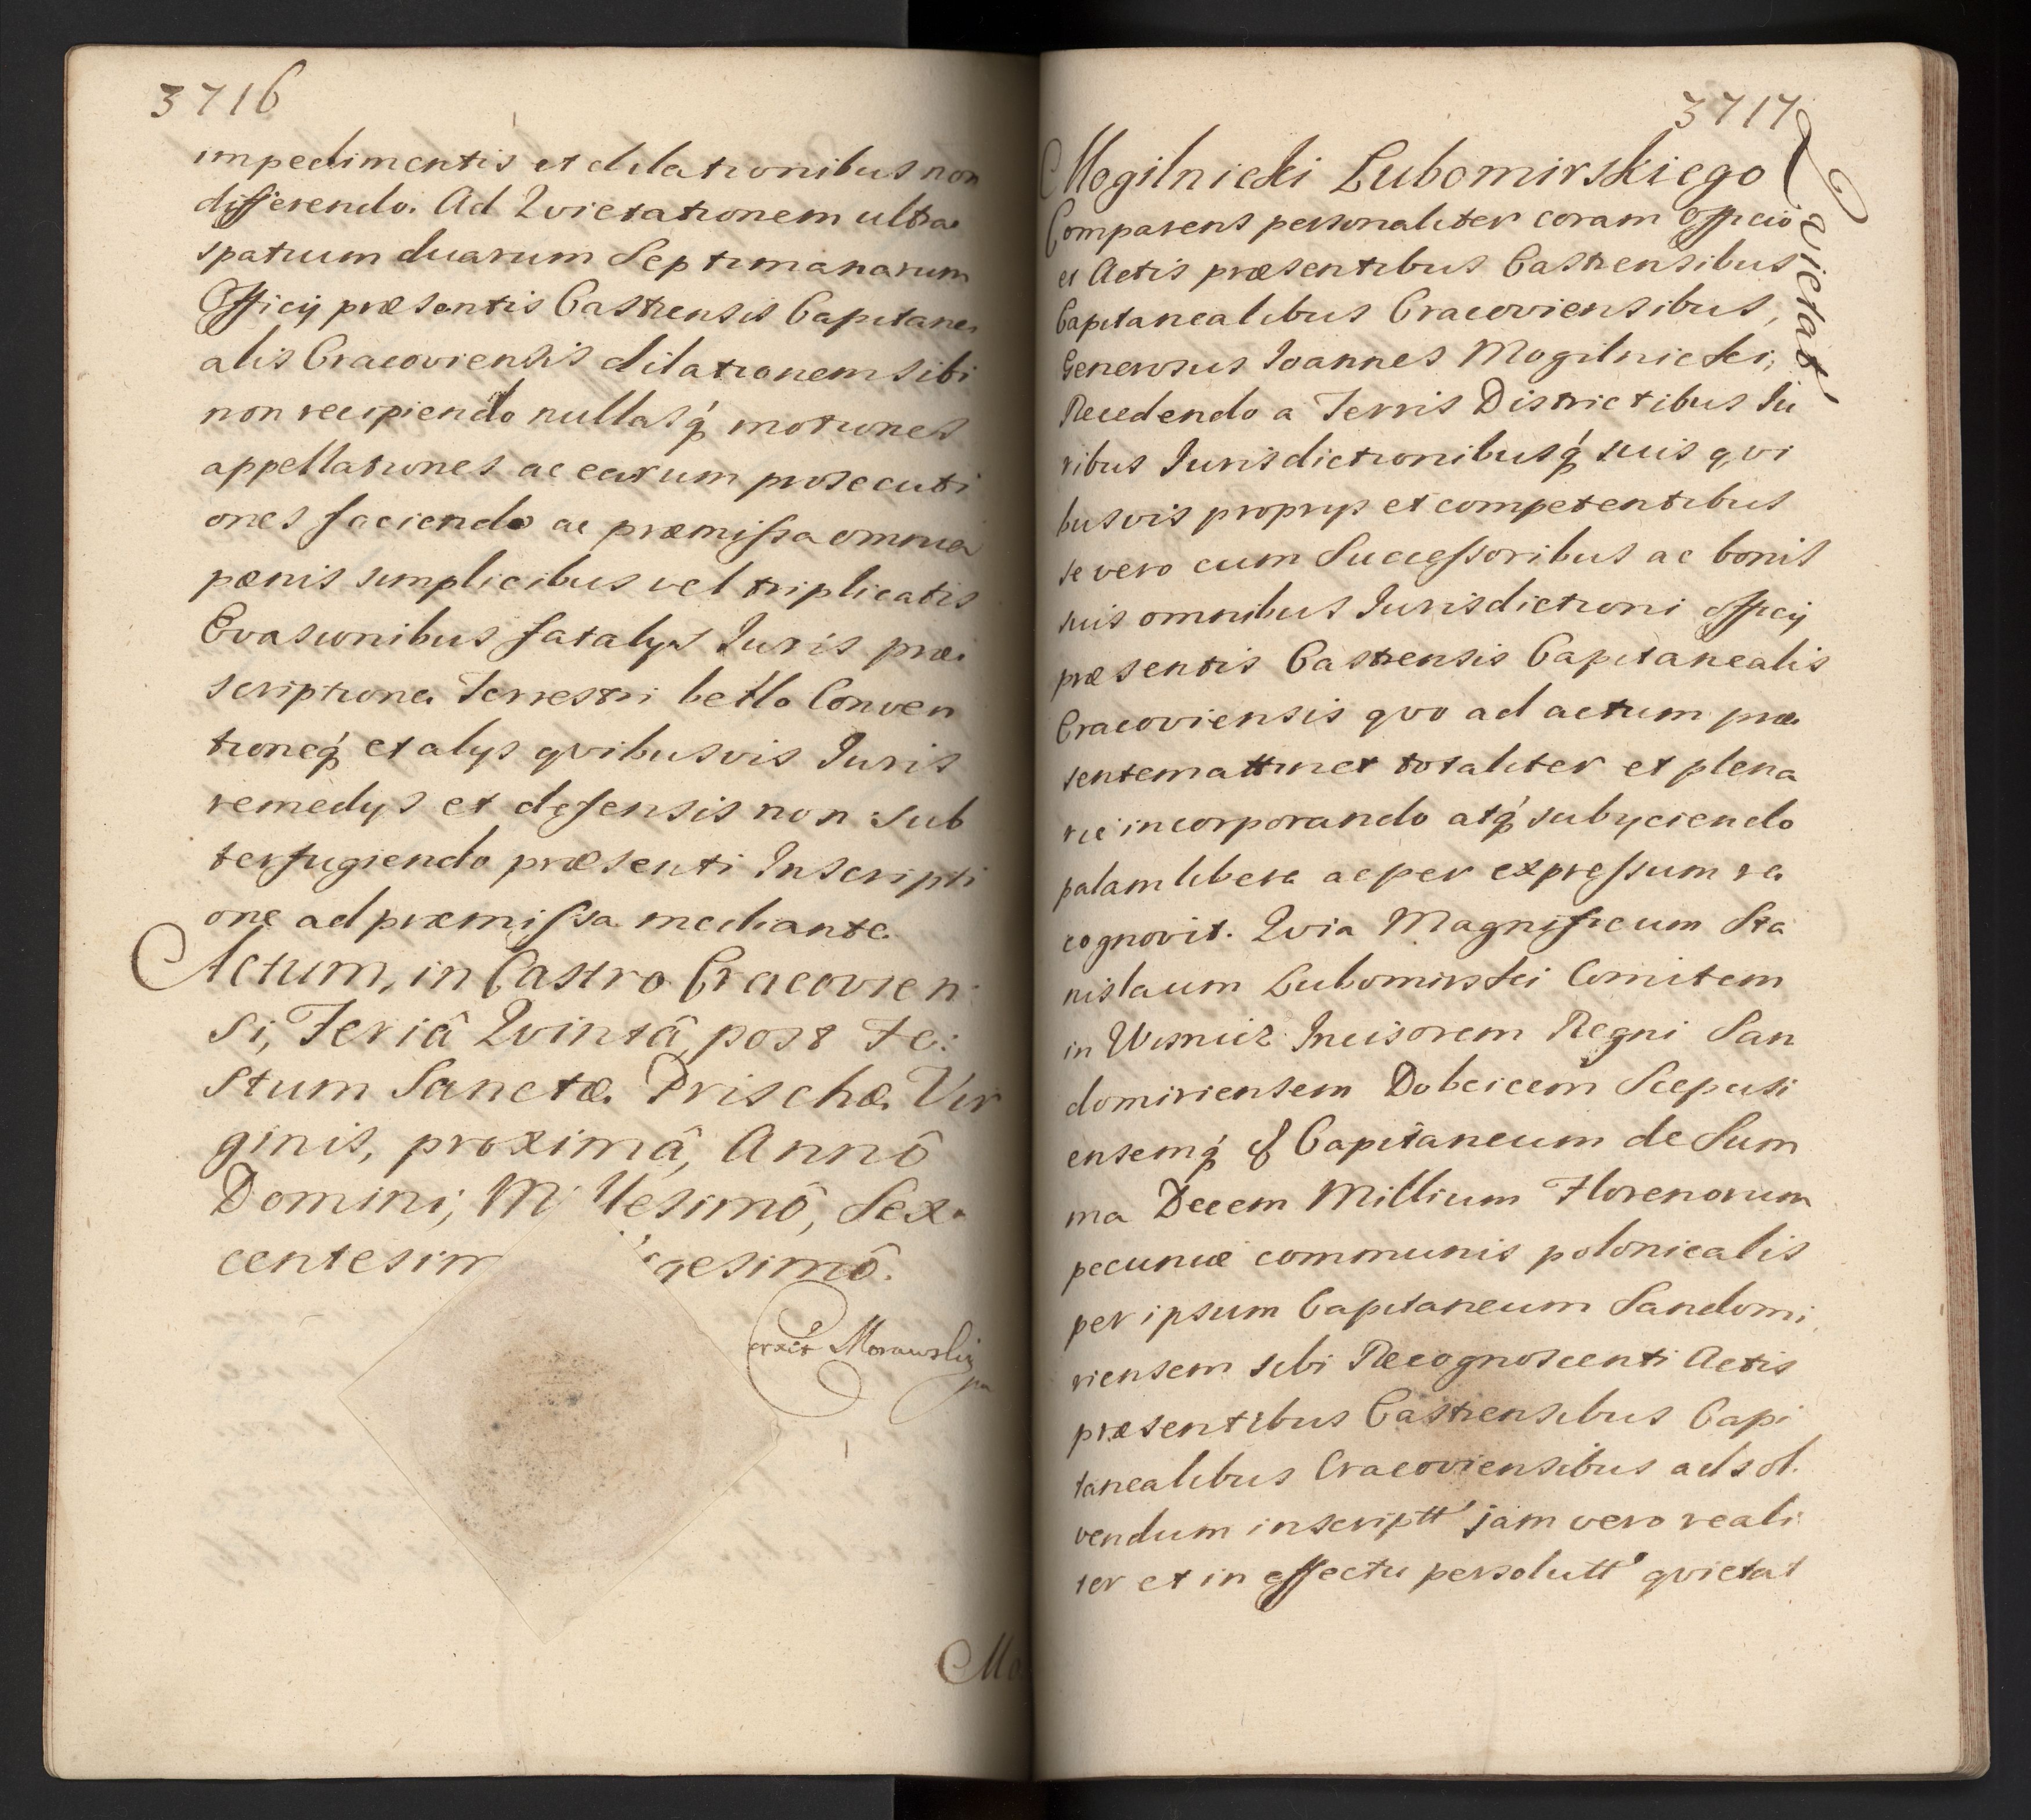 3716
impedimentis et dilationibus non
differendo. Ad Qvietationem ultra
spatium duarum Septimanarum
Officÿ præsentis Castrensis Capitane
alis Cracoviensis dilationem sibi
non recipiendo nullasq́ motiones
appellationes ac earum prosecuti
ones faciendo ac præmissa omnia
pænis simplicibus vel triplicatis
Evasionibus fatalys Iuris præ
scriptione Terrestri bello Conven
tioneq́ et alys qvibusvis Iuris
remedys et defensis non sub
terfugiendo præsenti Inscripti
one ad præmissa mediante
Actum, in Castro Cracovien
si, Feriâ Qvintâ post Fe:
stum Sanctæ Prischæ Vir
ginis, proximâ, Annô
Domini, Millesimô, Sex
centesim gesimô.
Morawski
Mo
3717
Mogilnicki Lubomirskiego
Qvietat
Comparens personaliter coram Officio
et Actis præsentibus Castrensibus
Capitanealibus Cracoviensibus,
Generosus Ioannes Mogilnicki;
Recedendo a Terris Districtibus Iu
ribus Iurisdictionibusq́ suis qvi
busvis proprys et competentibus
se vero cum Successoribus ac bonis
suis omnibus Iurisdictioni officÿ
præsentis Castrensis Capitanealis
Cracoviensis qvo ad actum præ
sentem attinet totaliter et plena
rie incorporando atq́ subyciendo
palam libere ac per expressum re
cognovit. Qvia Magnificum Sta
nislaum Lubomirski Comitem
in Wisnicz Incisorem Regni San
domiriensem Dobcicem Scepusi
ensemq́ & Capitaneum de Sum
ma Decem Millium Florenorum
pecuniæ communis polonicalis
per ipsum Capitaneum Sandomi
riensem sibi Recognoscenti Actis
præsentibus Castrensibus Capi
tanealibus Cracoviensibus ad sol
vendum inscriptt' jam vero reali
ter et in effectu persolutt' qvietat